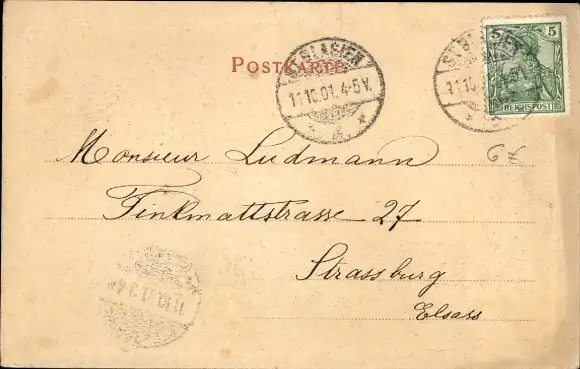 POSTKARTE
ST. BLASIEN
11.10.01. 4-5 V.
5
REICHSPOST
6€
Monsieur Ludmann
Finkmattstrasse 27
Strassburg
Elsass